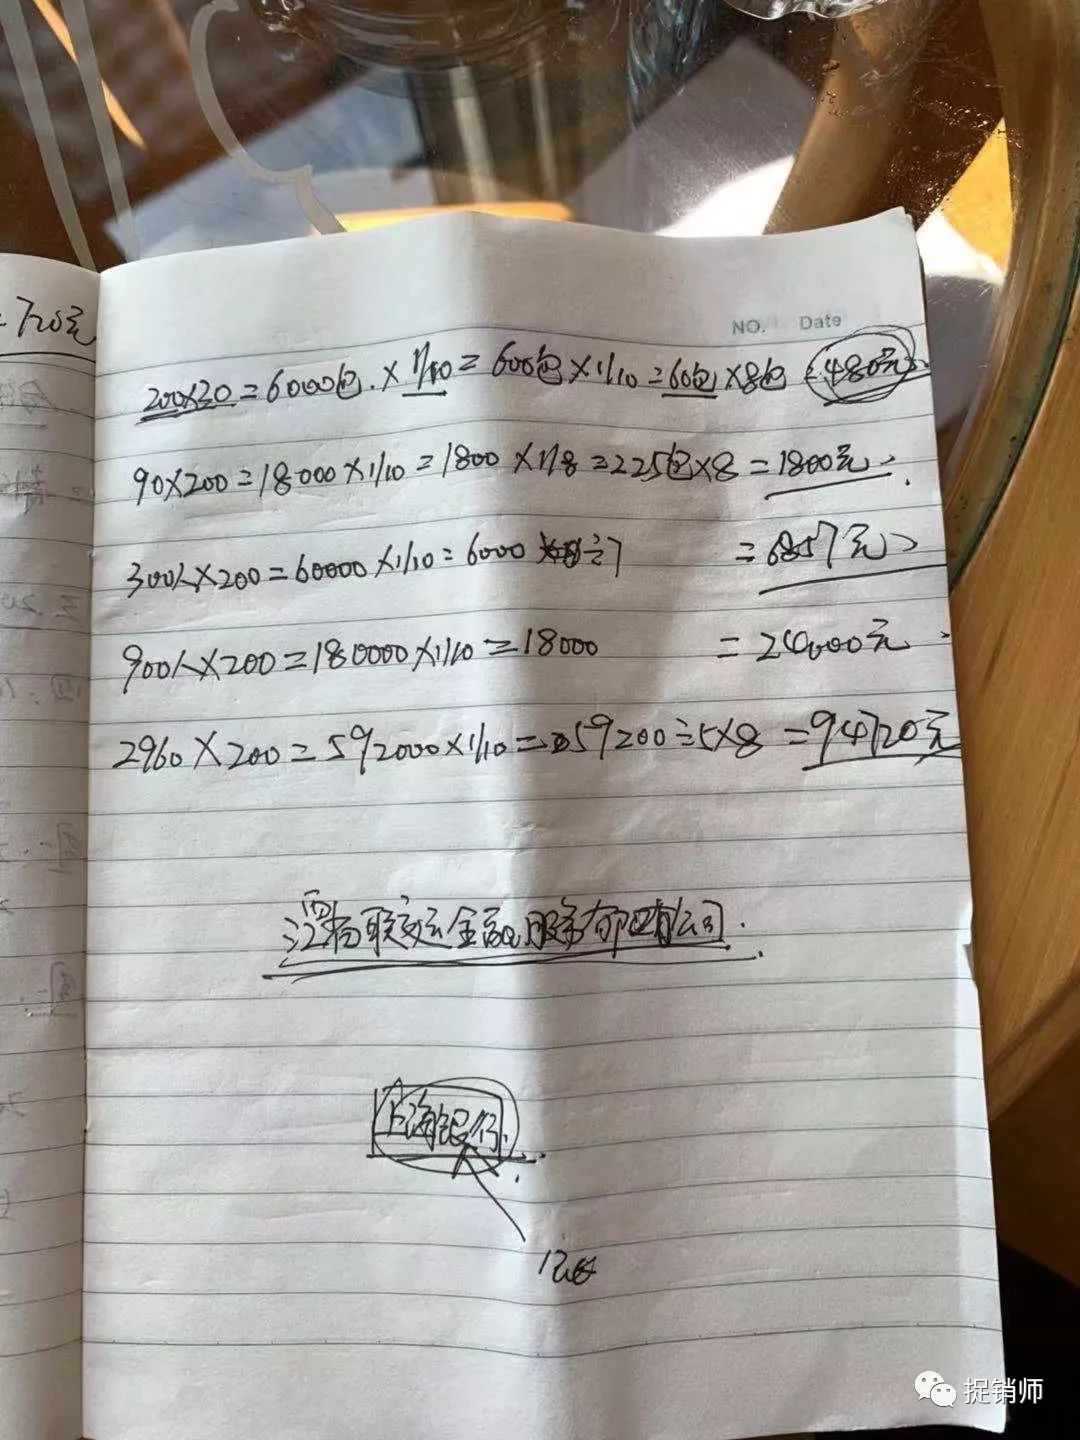 =720元
NO. Date
200×30=6000包.×1/10=600包×1/10=60包×8包=480元.
90×200=18000×1/10=1800×1/8=225包×8=1800元.
300人×200=60000×1/10=6000÷7=6857元
900人×200=180000×1/10=18000=24000元
2960×200=592000×1/10=59200÷5×8=94720元
联交运金融服务有限公司.
上海银行.
捉销师